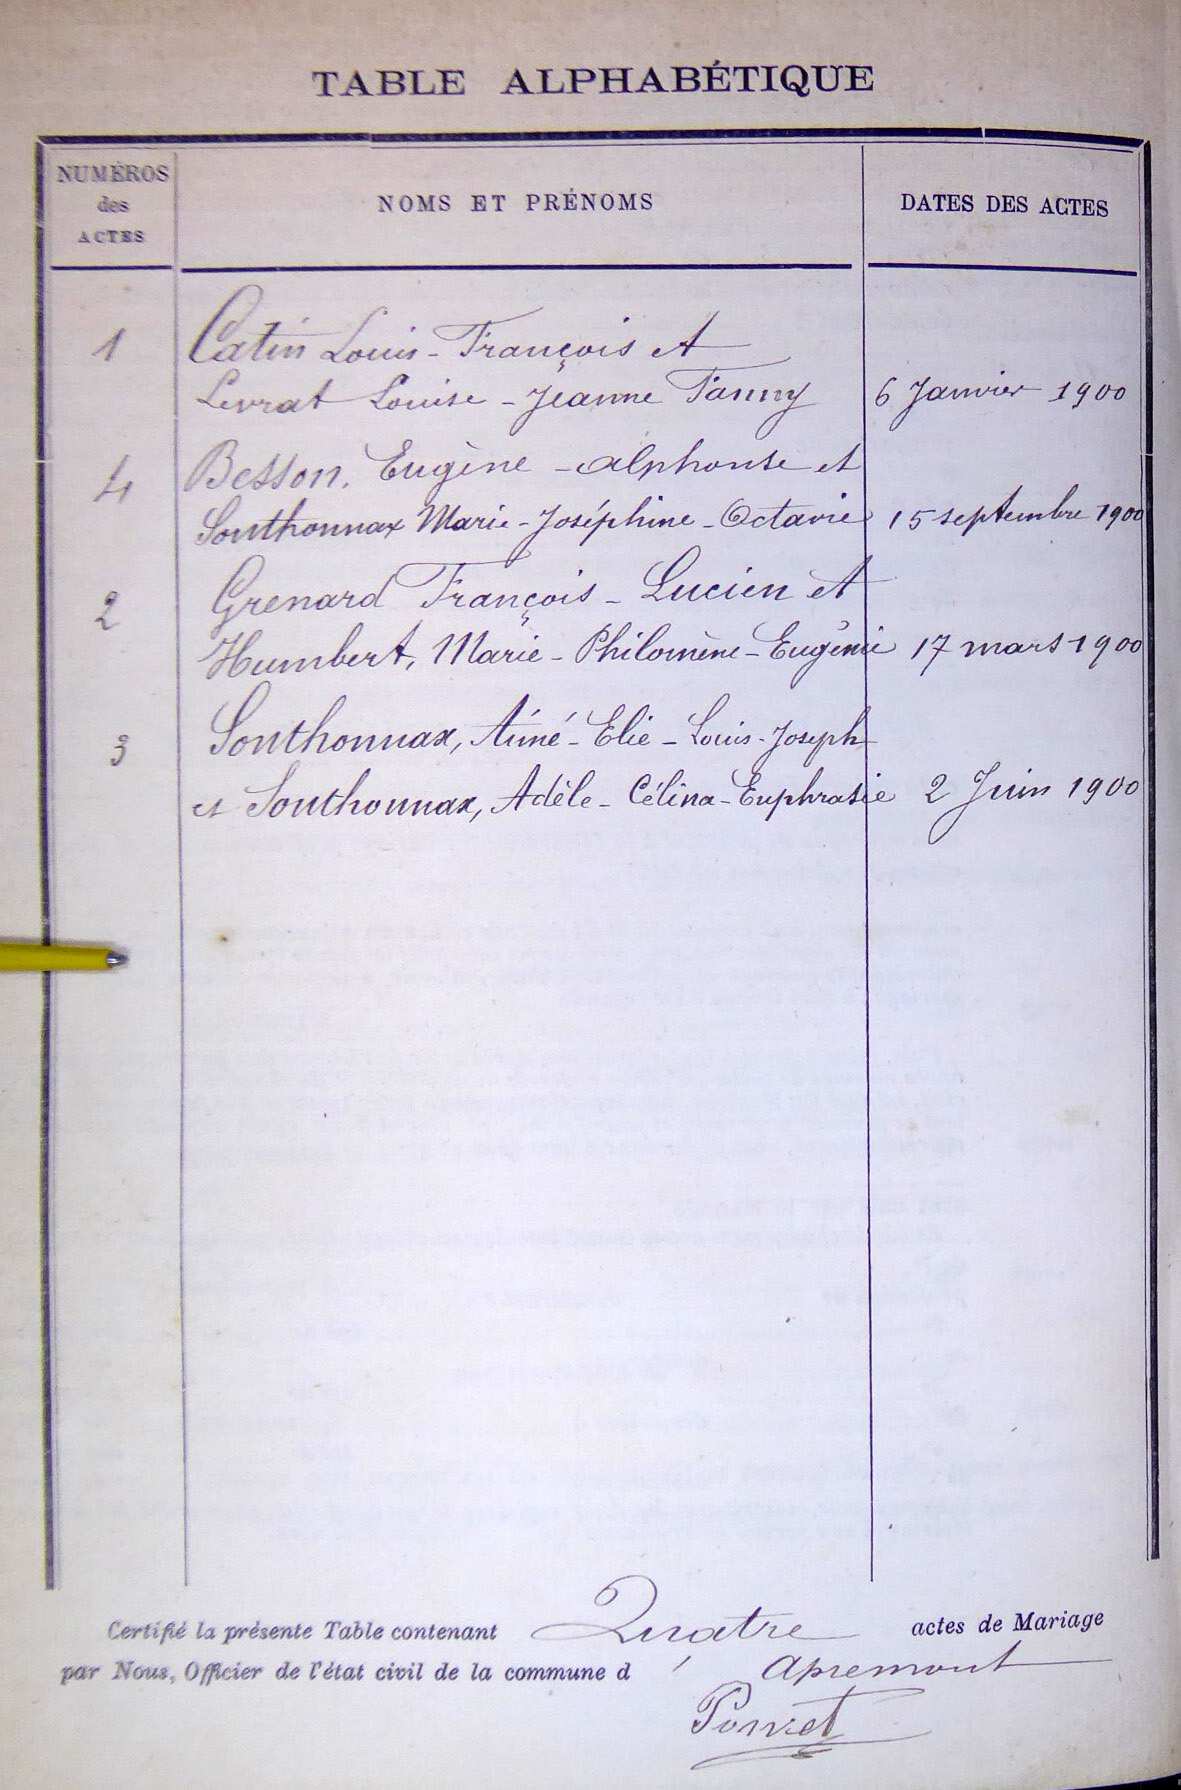 TABLE ALPHABÉTIQUE
NUMÉROS des ACTES
NOMS ET PRÉNOMS
DATES DES ACTES
1 Catin Louis-François et
Levrat Louise-Jeanne Fanny 6 Janvier 1900
4 Besson, Eugène-Alphonse et
Sonthonnax Marie-Joséphine-Octavie 15 septembre 1900
2 Grenard François-Lucien et
Humbert, Marie-Philomène-Eugénie 17 mars 1900
3 Sonthonnax, Aimé-Elie-Louis-Joseph
et Sonthonnax, Adèle-Célina-Euphrasie 2 Juin 1900
Certifié la présente Table contenant Quatre actes de Mariage
par Nous, Officier de l'état civil de la commune d' Apremont